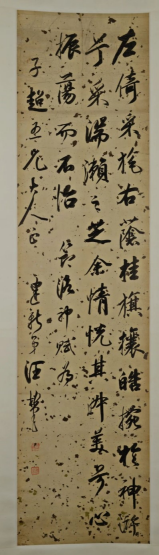 左倚采旄右蔭桂旗攘皓捥於神滸
兮采湍瀨之芝余情悅其淑美兮心
振蕩而不怡 節洛神賦為
子超五兄大人正 建新弟汪